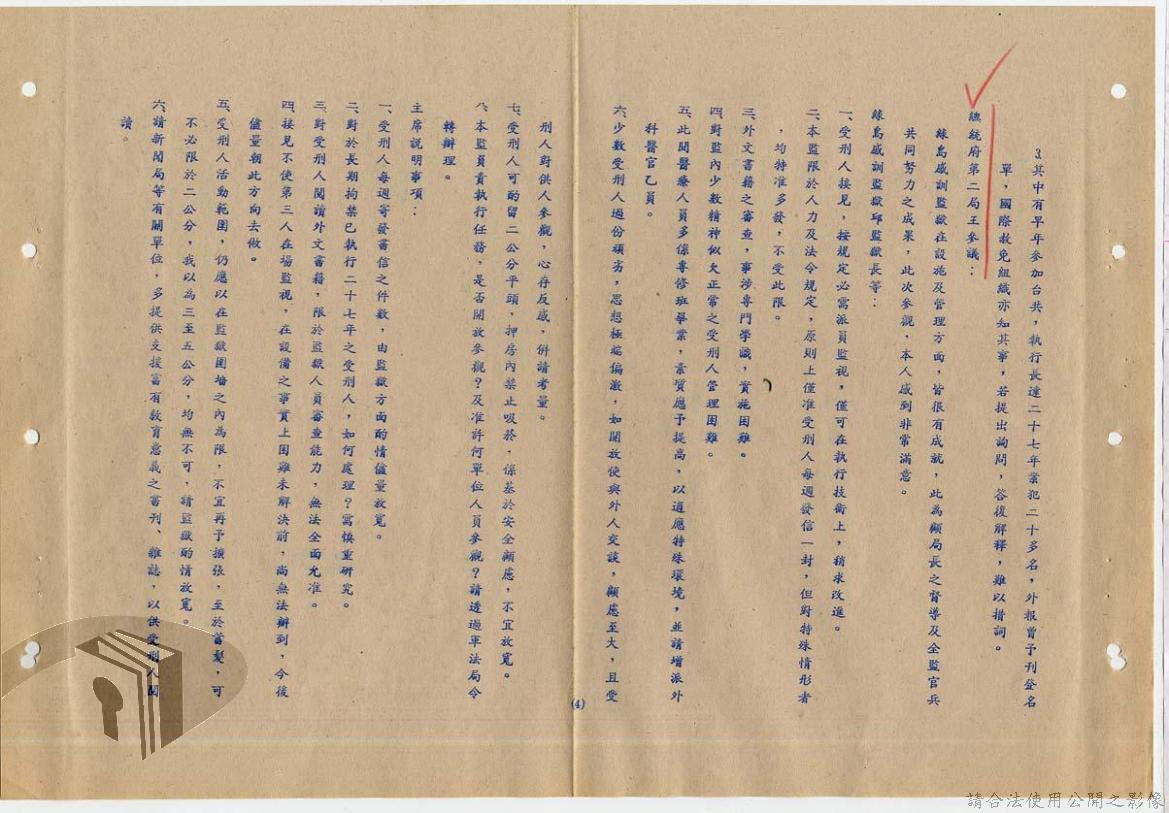 3.其中有早年參加台共，執行長達二十七年案犯二十多名，外報曾予刊登名
單，國際赦免組織亦知其事，若提出詢問，答復解釋，難以措詞。
總統府第二局王參議：
綠島感訓監獄在設施及管理方面，皆很有成就，此為顧局長之督導及全監官兵
共同努力之成果，此次參觀，本人感到非常滿意。
綠島感訓監獄邱監獄長等：
一、受刑人接見，按規定必需派員監視，僅可在執行技術上，稍求改進。
二、本監限於人力及法令規定，原則上僅准受刑人每週發信一封，但對特殊情形者
，均特准多發，不受此限。
三、外文書籍之審查，事涉專門學識，實施困難。
四、對監內少數精神似欠正常之受刑人管理困難。
五、此間醫療人員多係專修班畢業，素質應予提高，以適應特殊環境，並請增派外
科醫官乙員。
六、少數受刑人過份頑劣，思想極端偏激，如開放使與外人交談，顧慮至大，且受
(4)
刑人對供人參觀，心存反感，併請考量。
七、受刑人可酌留二公分平頭，押房內禁止吸菸，係基於安全顧慮，不宜放寬。
八、本監負責執行任務，是否開放參觀？及准許何單位人員參觀？請透過軍法局令
轉辦理。
主席說明事項：
一、受刑人每週寄發書信之件數，由監獄方面酌情儘量放寬。
二、對於長期拘禁已執行二十七年之受刑人，如何處理？需慎重研究。
三、對受刑人閱讀外文書籍，限於監獄人員審查能力，無法全面允准。
四、接見不使第三人在場監視，在設備之事實上困難未解決前，尚無法辦到，今後
儘量朝此方向去做。
五、受刑人活動範圍，仍應以在監獄圍牆之內為限，不宜再予擴張，至於蓄髮，可
不必限於二公分，我以為三至五公分，均無不可，請監獄酌情放寬。
六、請新聞局等有關單位，多提供支援富有教育意義之書刊、雜誌，以供受刑人閱
讀。
請合法使用公開之影像